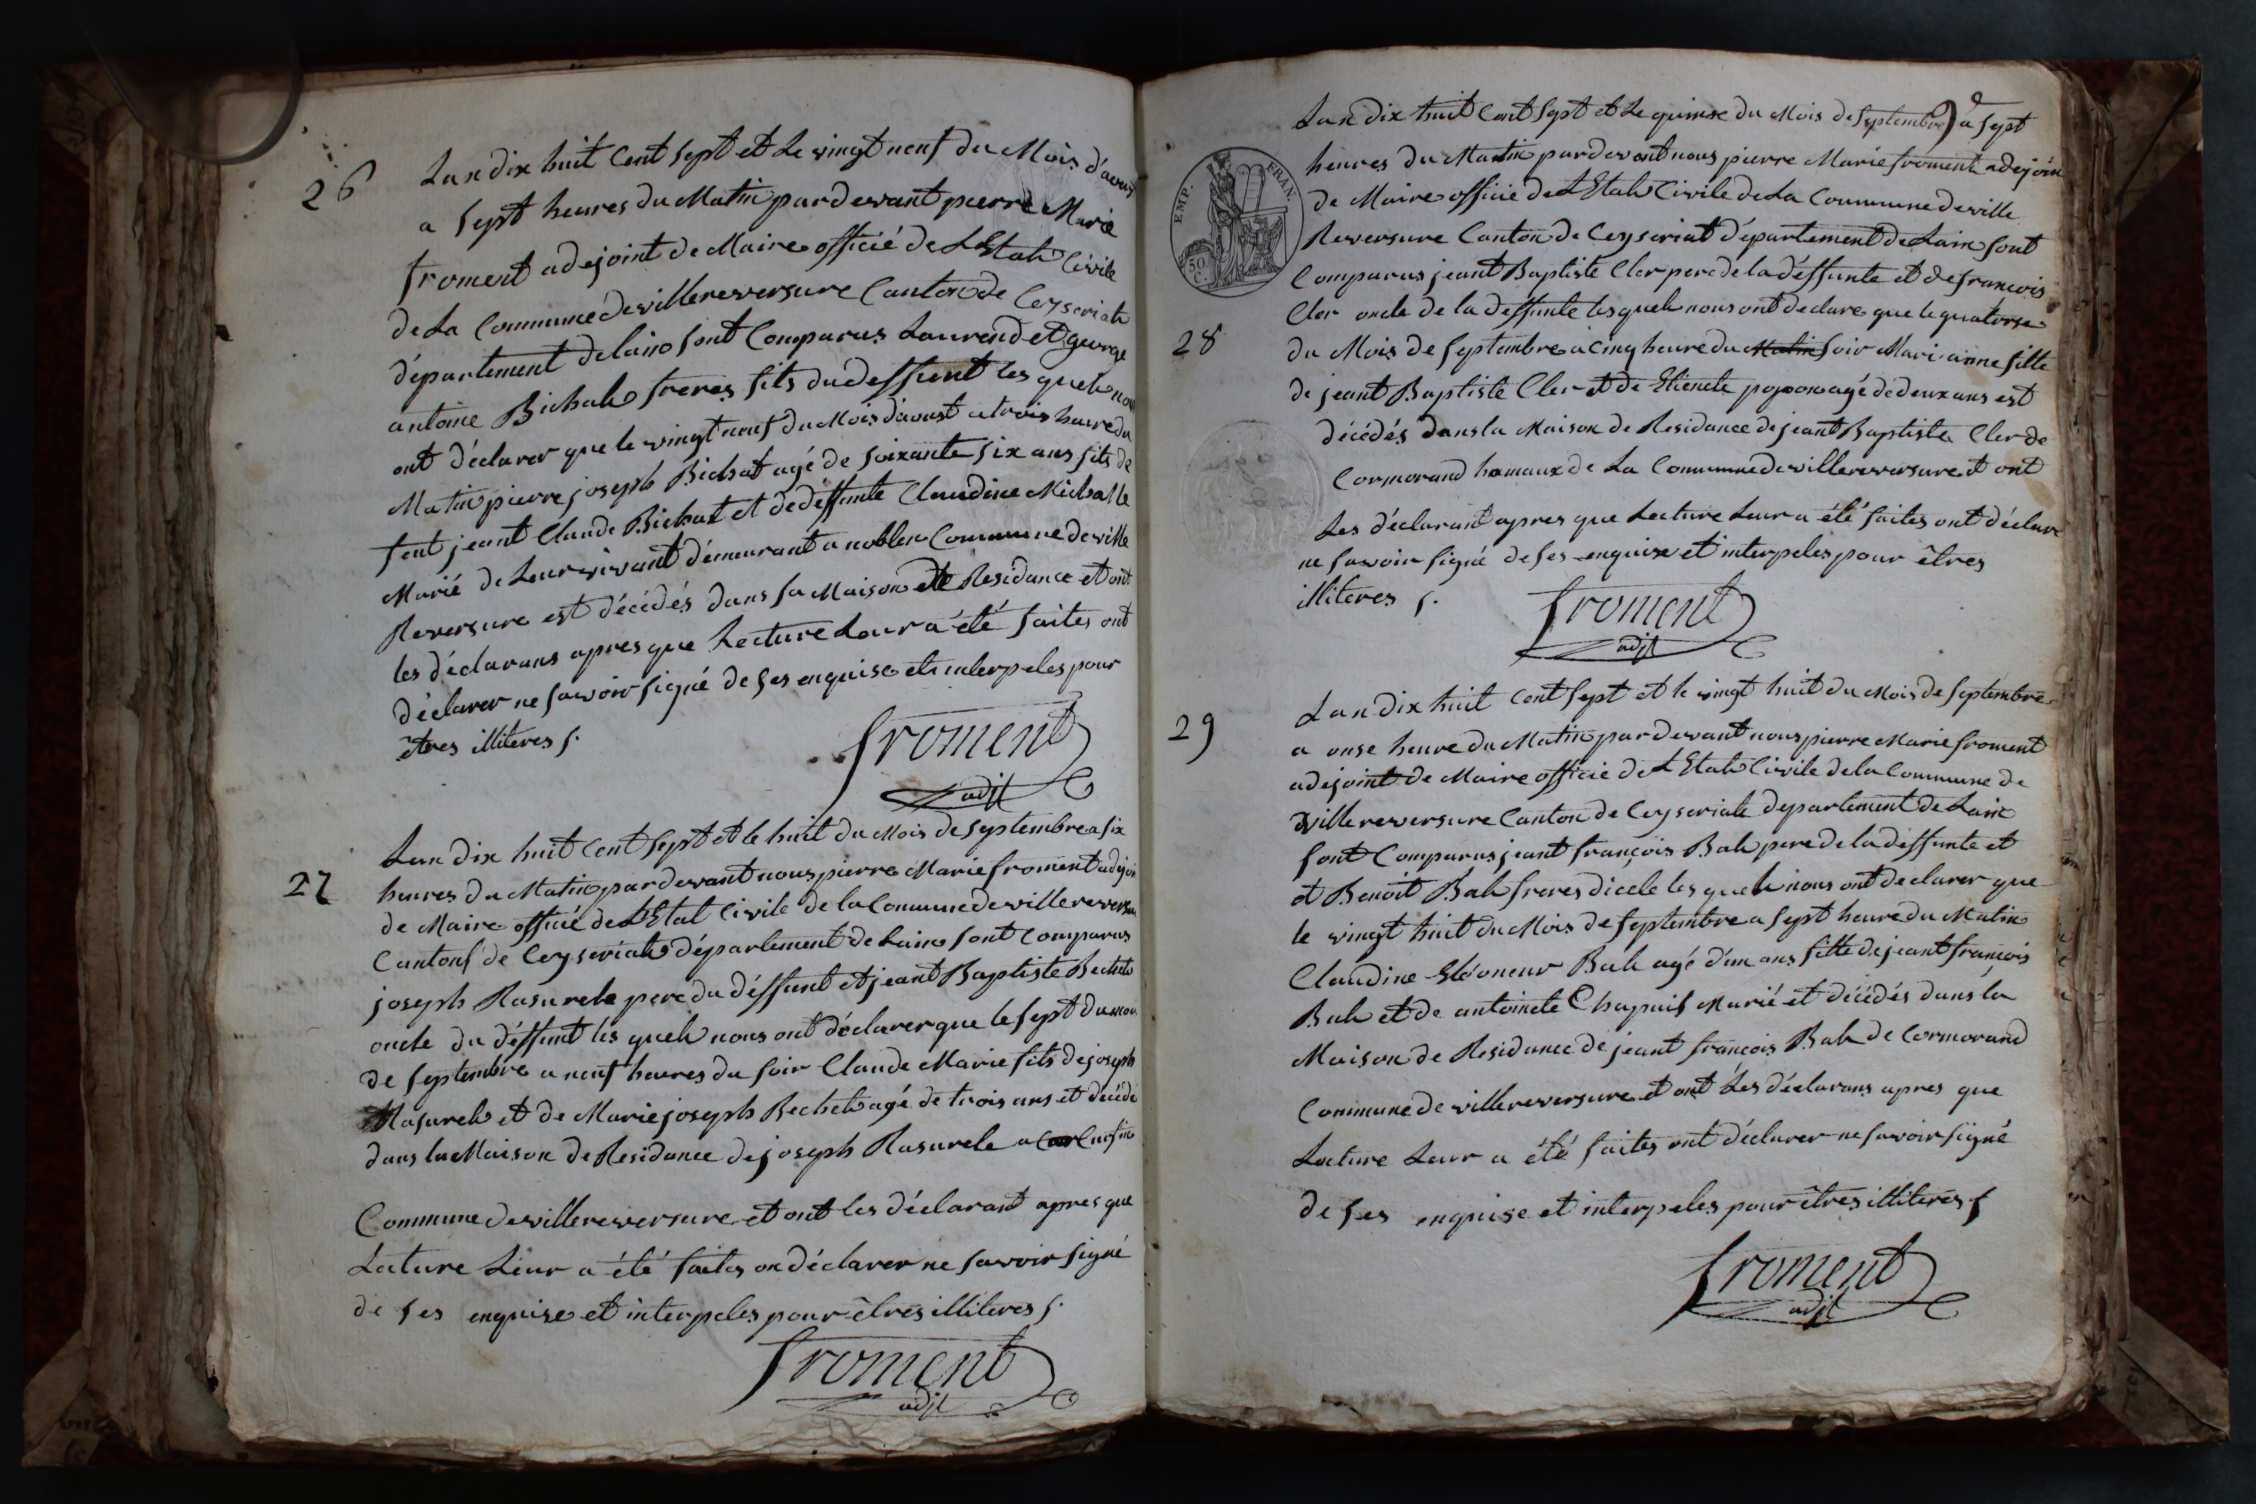 26
Lan dix huit Cent Sept et Le vingt neuf du Mois d'aoust
a Sept heures du Matin par devant pierre Marie
froment adejoint de Maire officié de L'Etah Civile
de La Commune de villereversure Canton de Ceyseriah
département de lain sont Comparus Laurend et george
antoine Bichah freres fils du deffunt les queh nou
ont déclarer que le vingt neuf du Mois d'aoust a trois heure du
Matin pierre joseph Bichat agé de soixante six ans fils de
feut jeant Claude Bichat et de deffunte Claudine Michalle
Marié de Leur vivant démeurant a noblen Commune de ville
Reversure est décédés dans sa Maison de Residance et ont
les déclarans apres que Lecture Leur a été faites ont
déclarer ne savoir signé de ses enquise et interpeles pour
êtres illiteres s.
froment
adjt
27
Lan dix huit Cent Sept et le huit du Mois de Septembre a six
heures du Matin par devant nous pierre Marie froment adejoin
de Maire officié de L'Etat Civile de la Commune de villereversure
Cantons de Ceyseriah département de Lain sont Comparus
joseph Rasurele pere du déffunt et jeant Baptiste Bechets
oncle du déffunt les queh nous ont déclarer que le sept du mois
de Septembre a neuf heures du soir Claude Marie fils de joseph
Rasureh et de Marie joseph Bechet agé de trois ans et décédé
dans la Maison de Residance de joseph Rasurele a
Commune de villereversure et ont les déclarant apres que
Lecture Leur a été faites on déclarer ne savoir signé
de ses enquise et interpeles pour êtres illiteres s.
froment
adjt
Lan dix huit Cent Sept et Le quinse du Mois de Septembre a Sept
heures du Matin par devant nous pierre Marie froment adejoin
de Maire officié de L'Etah Civile de La Commune de ville
Reversure Canton de Ceyseriat département de Lain sont
Comparus jeant Baptiste Cler pere de la déffunte et de francois
Cler oncle de la deffunte les queh nous ont declare que le quatorse
28
du Mois de Septembre a Cinq heure du Matin soir Marianne fille
de jeant Baptiste Cler et de Etienete popon agé de deux ans est
décédés dans la Maison de Residance de jeant Baptiste Cler de
Cormorand hamaux de La Commune de villereversure et ont
Les déclarant apres que Lecture Leur a été faites ont déclare
ne savoir signé de ses enquise et interpeles pour êtres
illiteres s.
froment
adjt
29
Lan dix huit Cent Sept et le vingt huit du Mois de Septembre
a onse heure du Matin par devant nous pierre Marie froment
adejoint de Maire officié de L'Etah Civile de la Commune de
villereversure Canton de Ceyseriah departement de Lain
sont Comparus jeant françois Bah pere de la déffunte et
et Benoit Bah freres dicele les queh nous ont declarer que
le vingt huit du Mois de Septembre a Sept heure du Matin
Claudine Eléoneur Bah agé d'un ans fille de jeant françois
Bah et de antoinete Chapuis Marié et décédés dans la
Maison de Residance de jeant françois Bah de Cormorand
Commune de villereversure et ont Les déclarans apres que
Lecture Leur a été faites ont déclarer ne savoir signé
de ses enquise et interpeles pour êtres illiteres s
froment
adjt
EMP. FRAN.
50 C.